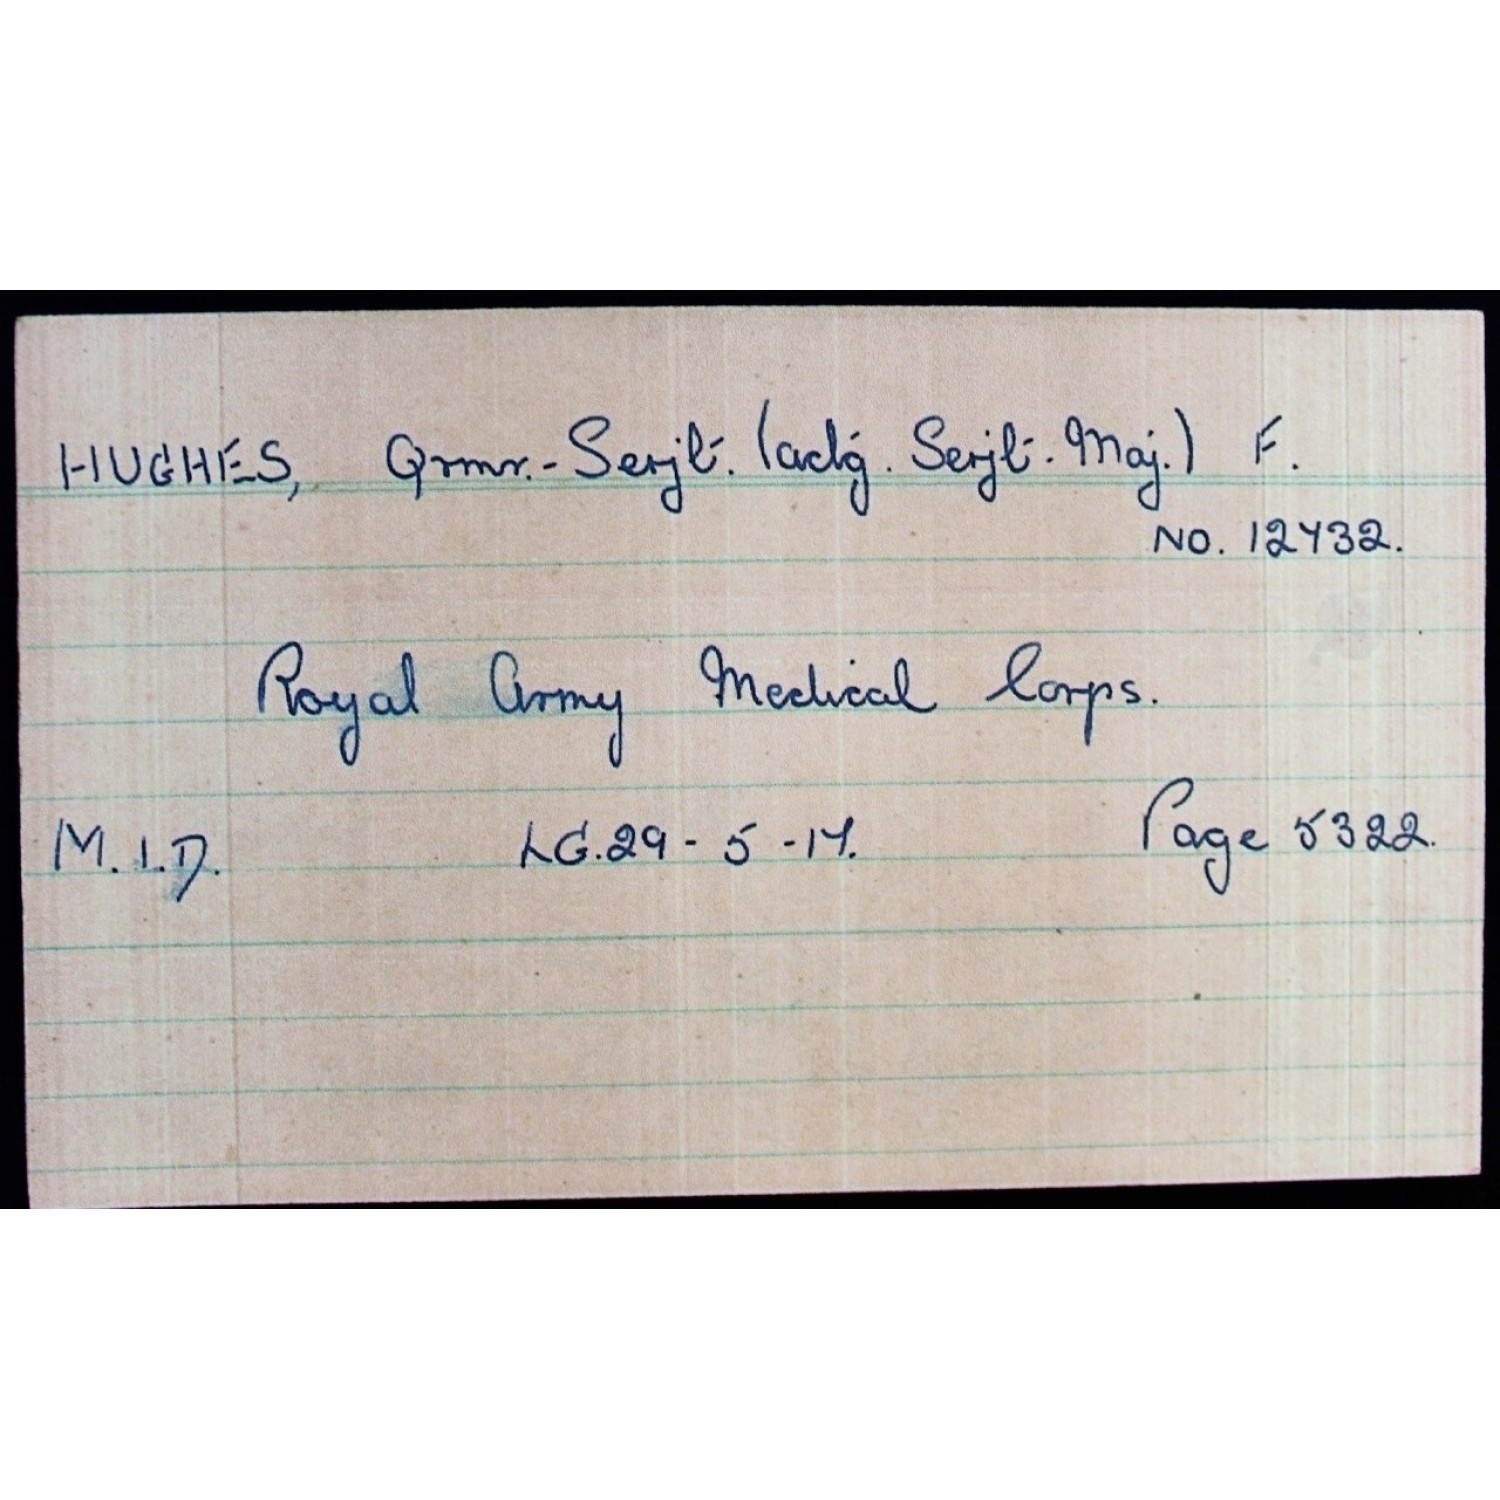 HUGHES, Qrmr.-Serjt. (actg. Serjt.-Maj.) F.
NO. 12732.
Royal Army Medical Corps.
M.I.D. LG. 29-5-17. Page 5322.